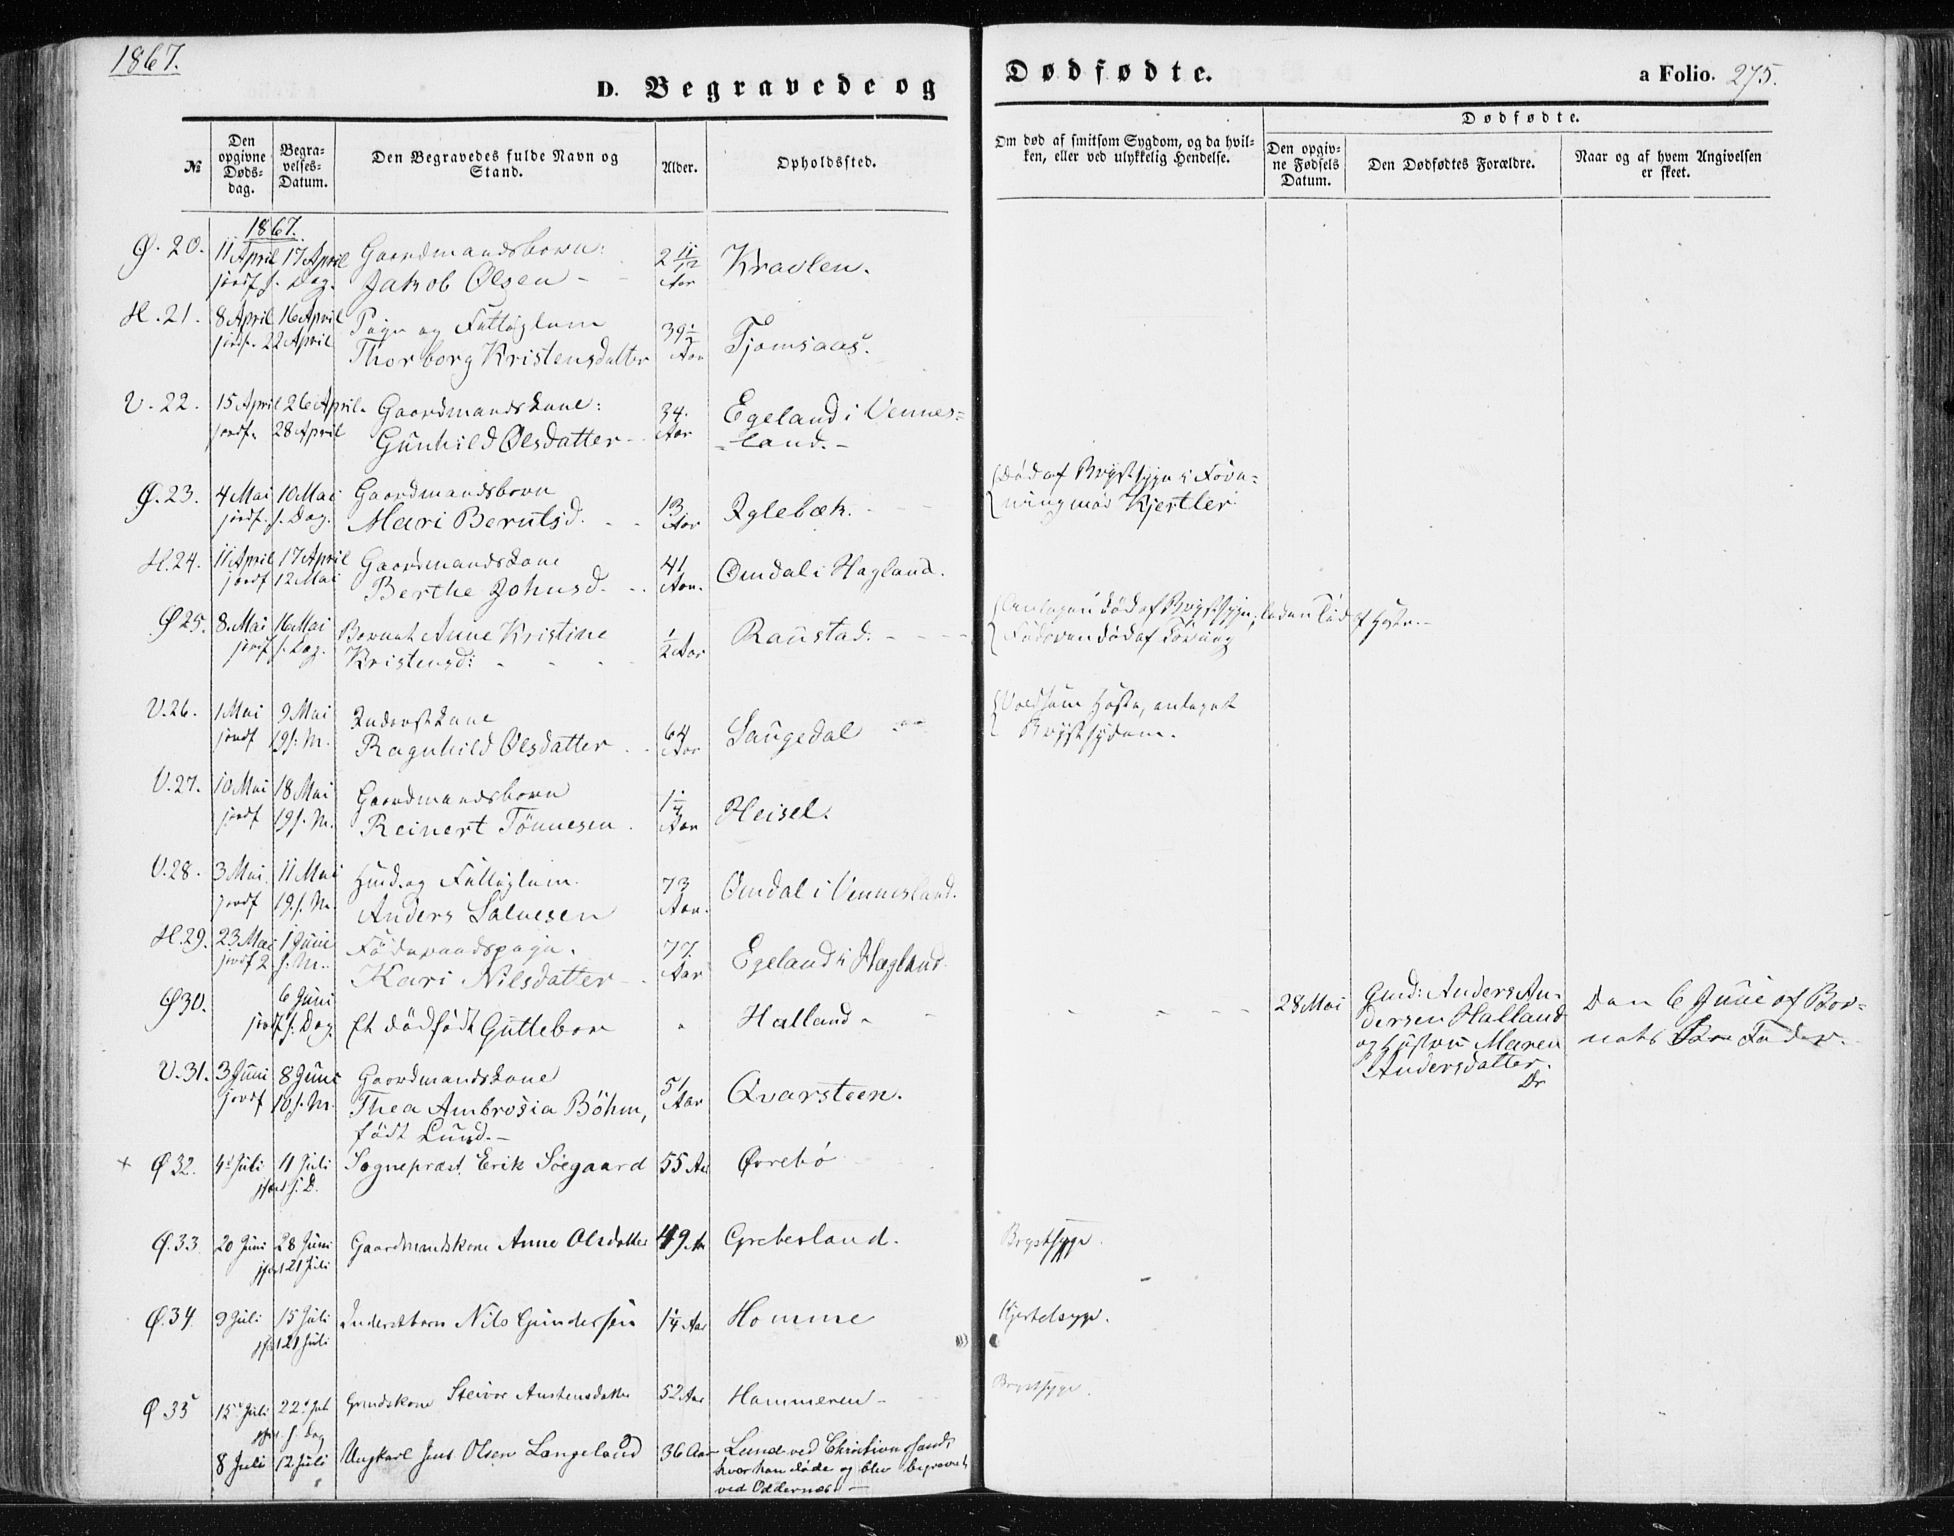 1867.
D. Begravede og Dødfødte. a Folio. 275.
№
Den opgivne Døds-dag.
Begra-velses-Datum.
Den Begravedes fulde Navn og Stand.
Alder.
Opholdssted.
Om død af smitsom Sygdom, og da hvil-ken, eller ved ulykkelig Hendelse.
Dødfødte.
Den opgiv-ne Fødsels Datum.
Den Dødfødtes Forældre.
Naar og af hvem Angivelsen er skeet.
1867.
Ø. 20. 11 April 17 April Gaardmandsbarn: 2 11/12 Kravlen.
jordf. s. Dag. Jakob Olsen - Aar
H. 21. 8 April 16 April Pige og Fattiglem 39 1/2 Fjomsaas.
jordf. 22 April Thorborg Kristensdatter Aar
V. 22. 15 April 26 April. Gaardmandskone: 34. Egeland i Vennes=
jordf. 28 April Gunhild Olsdatter - Aar =land. -
Ø. 23. 4 Mai 10 Mai Gaardmandsbarn 13 Iglebæk. Død af Brystsyge
jordf. s. Dag. Mari Berntsd. Aar Kjertler.
H. 24. 11 April 17 April Gaardmandskone 41 Omdal i Hagland.
jordf 12 Mai Berthe Johnsd. Aar.
Ø 25. 8. Mai 16 Mai Barnet Anne Kristine 1/2 Aar Raustad. død af Brystsyge,
jordf s. Dag. Kristensd:
V. 26. 1 Mai 9 Mai Inderstkone 64 Laugedal Voldsom Hoste, antaget
jordf 19 s. M. Ragnhild Olsdatter Aar Brystsygdom.
V. 27. 10 Mai 18 Mai Gaardmandsbarn 1 1/4 Heisel.
jordf 19 s. M. Reinert Tönnesen. Aar
V. 28. 3 Mai. 11 Mai Husm. og Fattiglem. 73 Omdal i Vennesland.
jordf 19. s. M. Anders Salvesen Aar.
H. 29. 23 Mai 1 Juni Föderaadspige. 77. Egeland i Hægland.
jordf 2 s. M. Kari Nilsdatter - Aar
Ø 30. 6 Juni Et dödfödt Guttebarn Halland - 28 Mai Gmd: Anders An-
jordf s. Dag. dersen Halland Den 6 Juni af Bar-
og Hustru Maren nets Fader.
Andersdatter.
V. 31. 3 Juni 8 Juni Gaardmandskone 51 Qvarsteen.
jordf 10 s. M. Thea Ambrosia Böhm, Aar
födt Lund. -
+ Ø 32. 4 Juli 11 Juli Sognepræst Erik Söegaard 55 Aar Øvrebö
s. D.
Ø. 33. 20 Juni 28 Juni Gaardmandskone Anne Olsdatter 49 Aar Greteland. Brystsyge.
21 Juli
Ø. 34. 9 Juli 15 Juli Inderstbarn Nils Gundersen 1 1/4 Aar Homme Kjertelsyge.
21 Juli
Ø 35 15 Juli 22 Juli Gmdskone Steivor Austensdatter 52 Aar Hammeren - Brystsyge.
s. Dag
8 Juli 12 Juli Ungkarl Jens Olsen Langeland 36 Aar Lund ved Christiansand,
hvor han døde og blev begravet
ved Oddernæs -